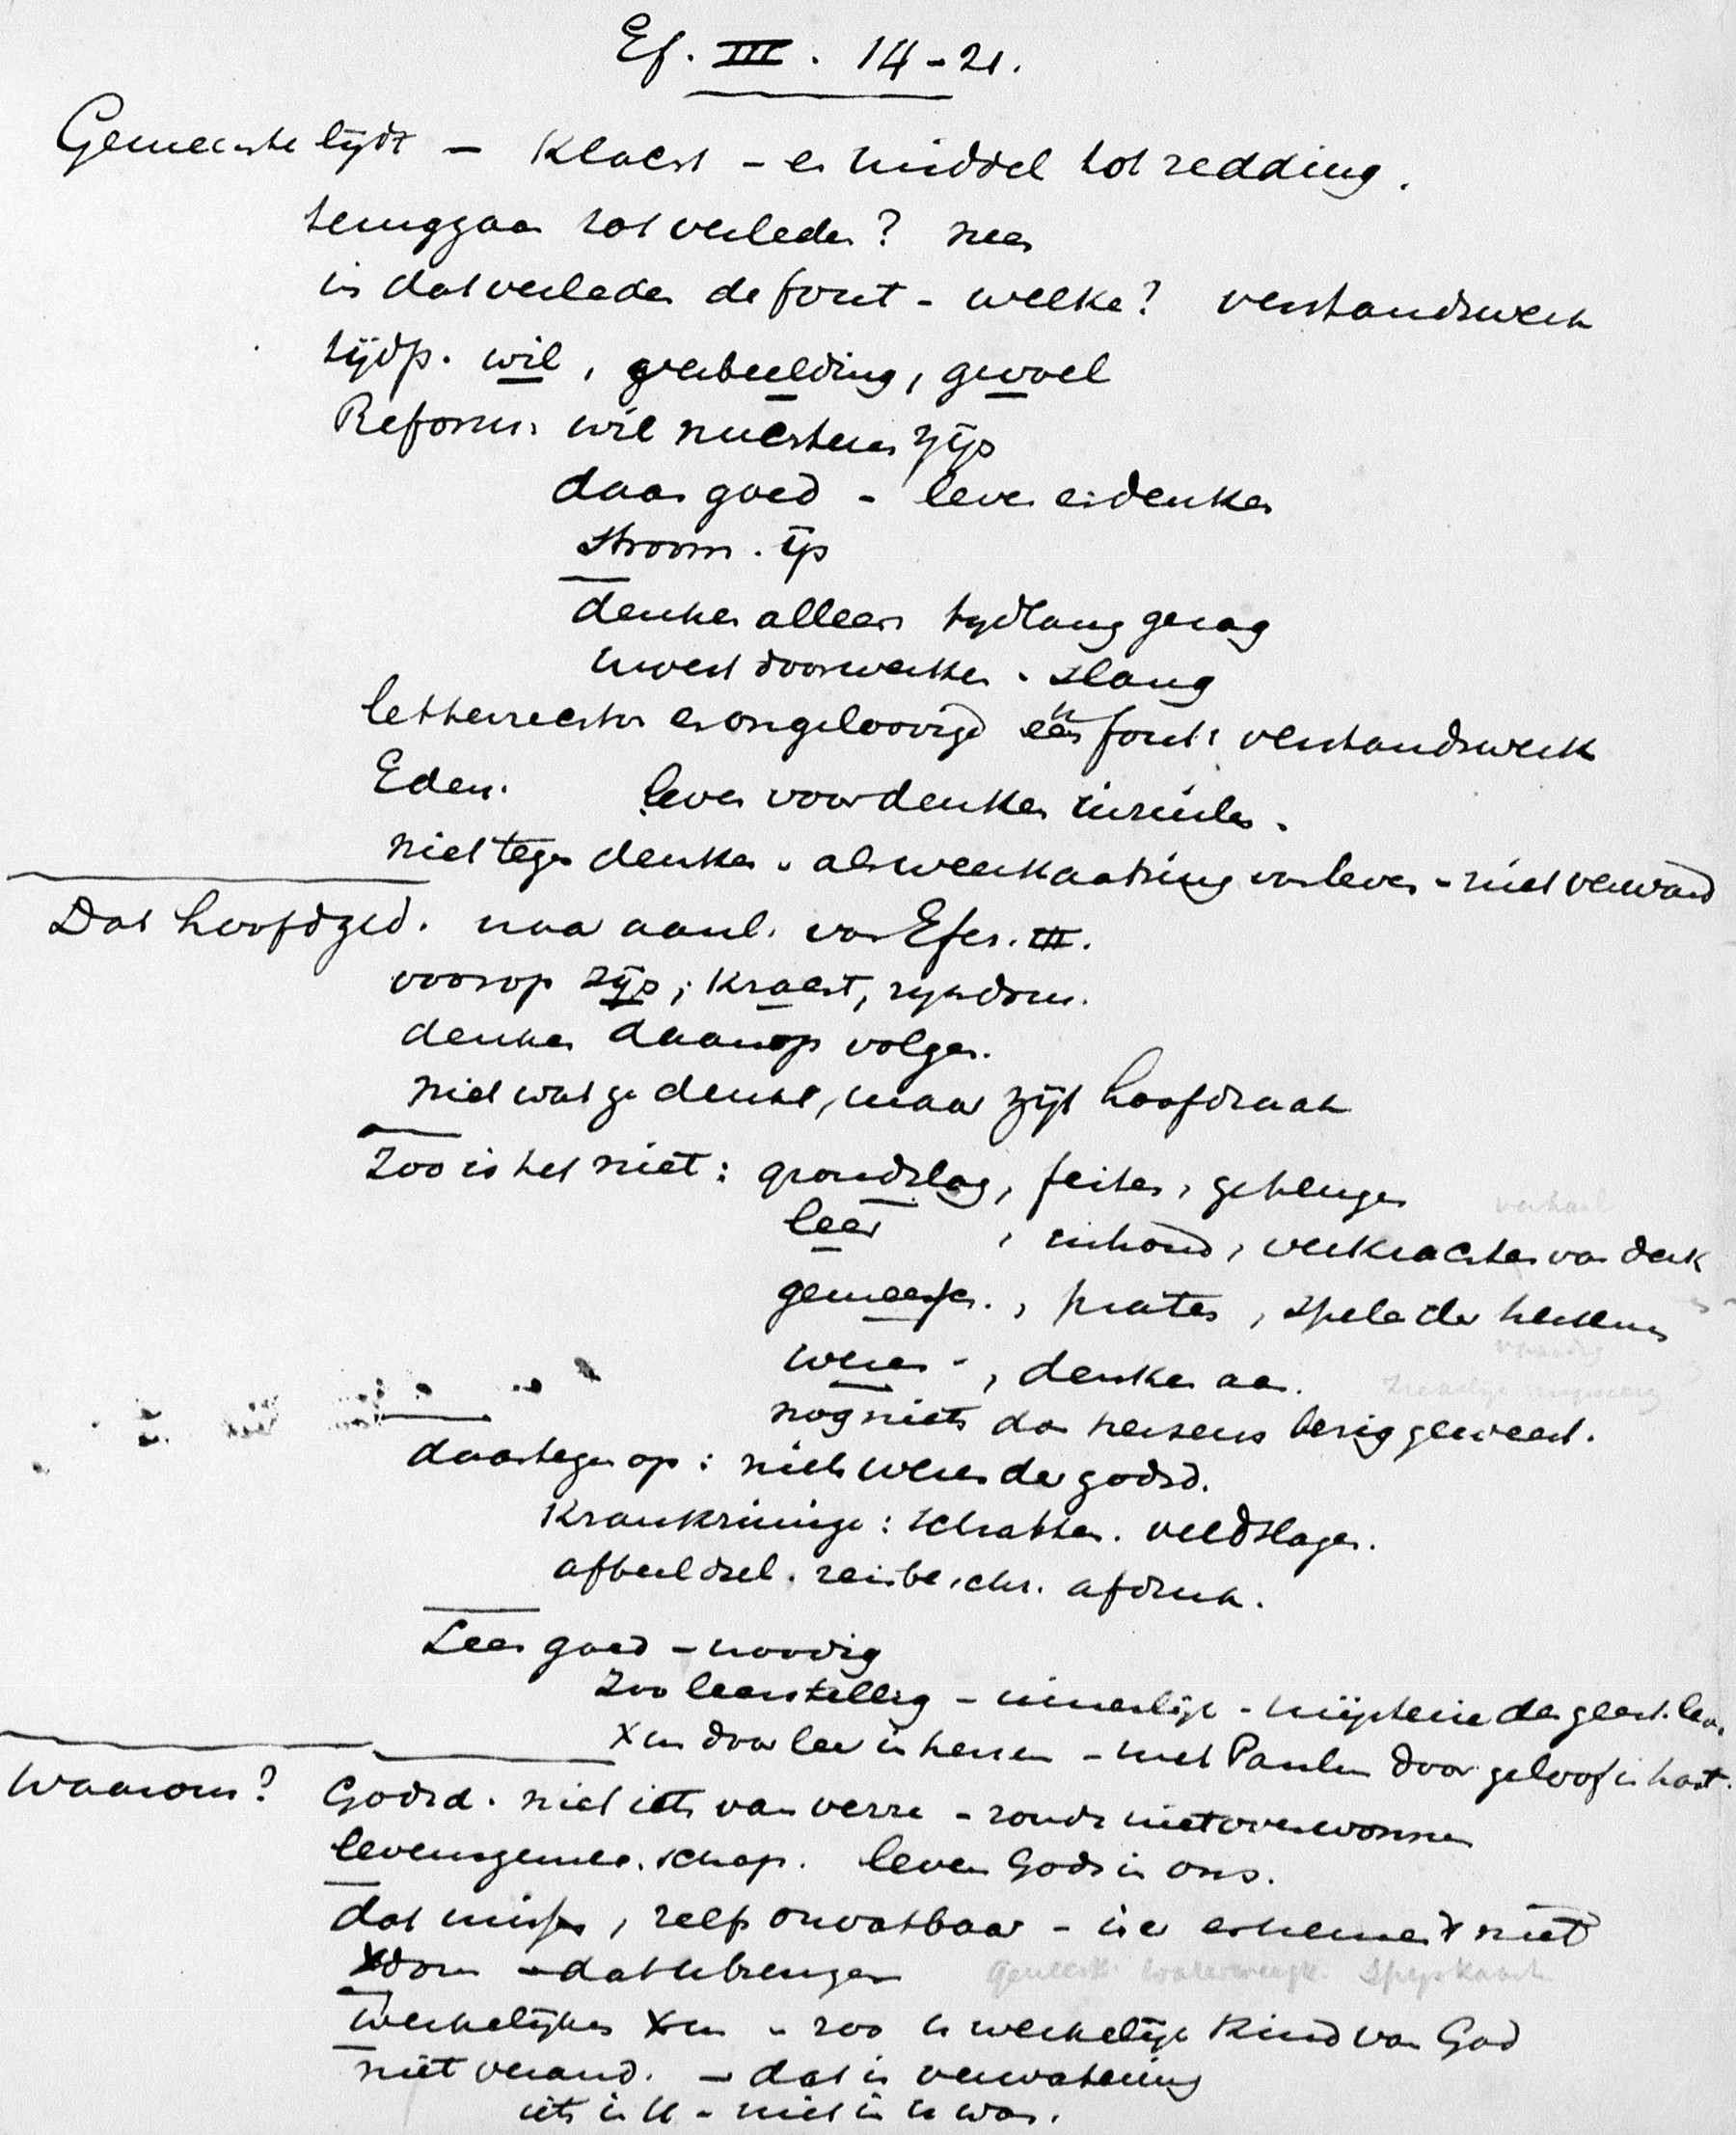 Ef. III. 14-21.
Gemeente lijdt – klacht – en middel tot redding.
teruggaan tot verleden? neen
in dat verleden de fout – welke? verstandswerk
tijdp. wil, verbeelding, gevoel
Reform. wil nuchteren zijn
daar goed – leven en denken
stroom. ijs
denken alleen tijdlang gezag
moest doorwerken. slang
letterknechten en ongeloovige één fout: verstandswerk
Eden. leven voor denken inruilen.
niet tegen denken. als weerkaatsing van leven – niet verward
Dat hoofdged. naar aanl. van Efez. III.
voorop zijn, kracht, rijkdom.
denken daarop volgen.
niet wat ge denkt, maar zijt hoofdzaak
Zoo is het niet: grondslag, feiten, getuigen
verhaal
leer, inhoud, verkrachten van denk
gemeensch., praten, spel der hersens
wezen, denken aan.
nog niets dan hersens bezig geweest.
daartegen op: niets wezen der godsd.
Krankzinnige: schatten. veldslagen.
afbeeldsel. reisbeschr. afdruk.
Leer goed – noodig
Zoo leerstellig – innerlijk – mysterie der geest. lev.
X en door leer in hersen – met Paulus door geloof in hart.
Waarom? Godsd. niet iets van verre – zonde niet overwonnen
levensgemeenschap. leven Gods in ons.
dat missen, zelf onvatbaar – is er erkennen't niet
Xdom – dat te brengen
werkelijken X en – zoo is werkelijk kind van God
niet verand. – dat is verwatering
iets in U – niet in U was.